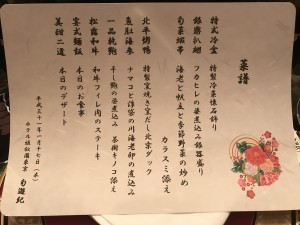 菜譜
特式冷盆　特製冷菜懐石飾り
銀露扒翅　フカヒレの姿煮込み銀器盛り
旬菜蝦帯　海老と帆立と季節野菜の炒め
カラスミ添え
北平烤鴨　特製窯焼き窯だし北京ダック
海参　ナマコと浮袋の川海老卵の煮込み
一品乾鮑　干し鮑の姿煮込み　茶樹キノコ添え
松露和牛　和牛フィレ肉のステーキ
宴式麺飯　本日のお食事
美甜二道　本日のデザート
平成三十一年一月十七日（木）
ホテル雅叙園東京
旬遊紀